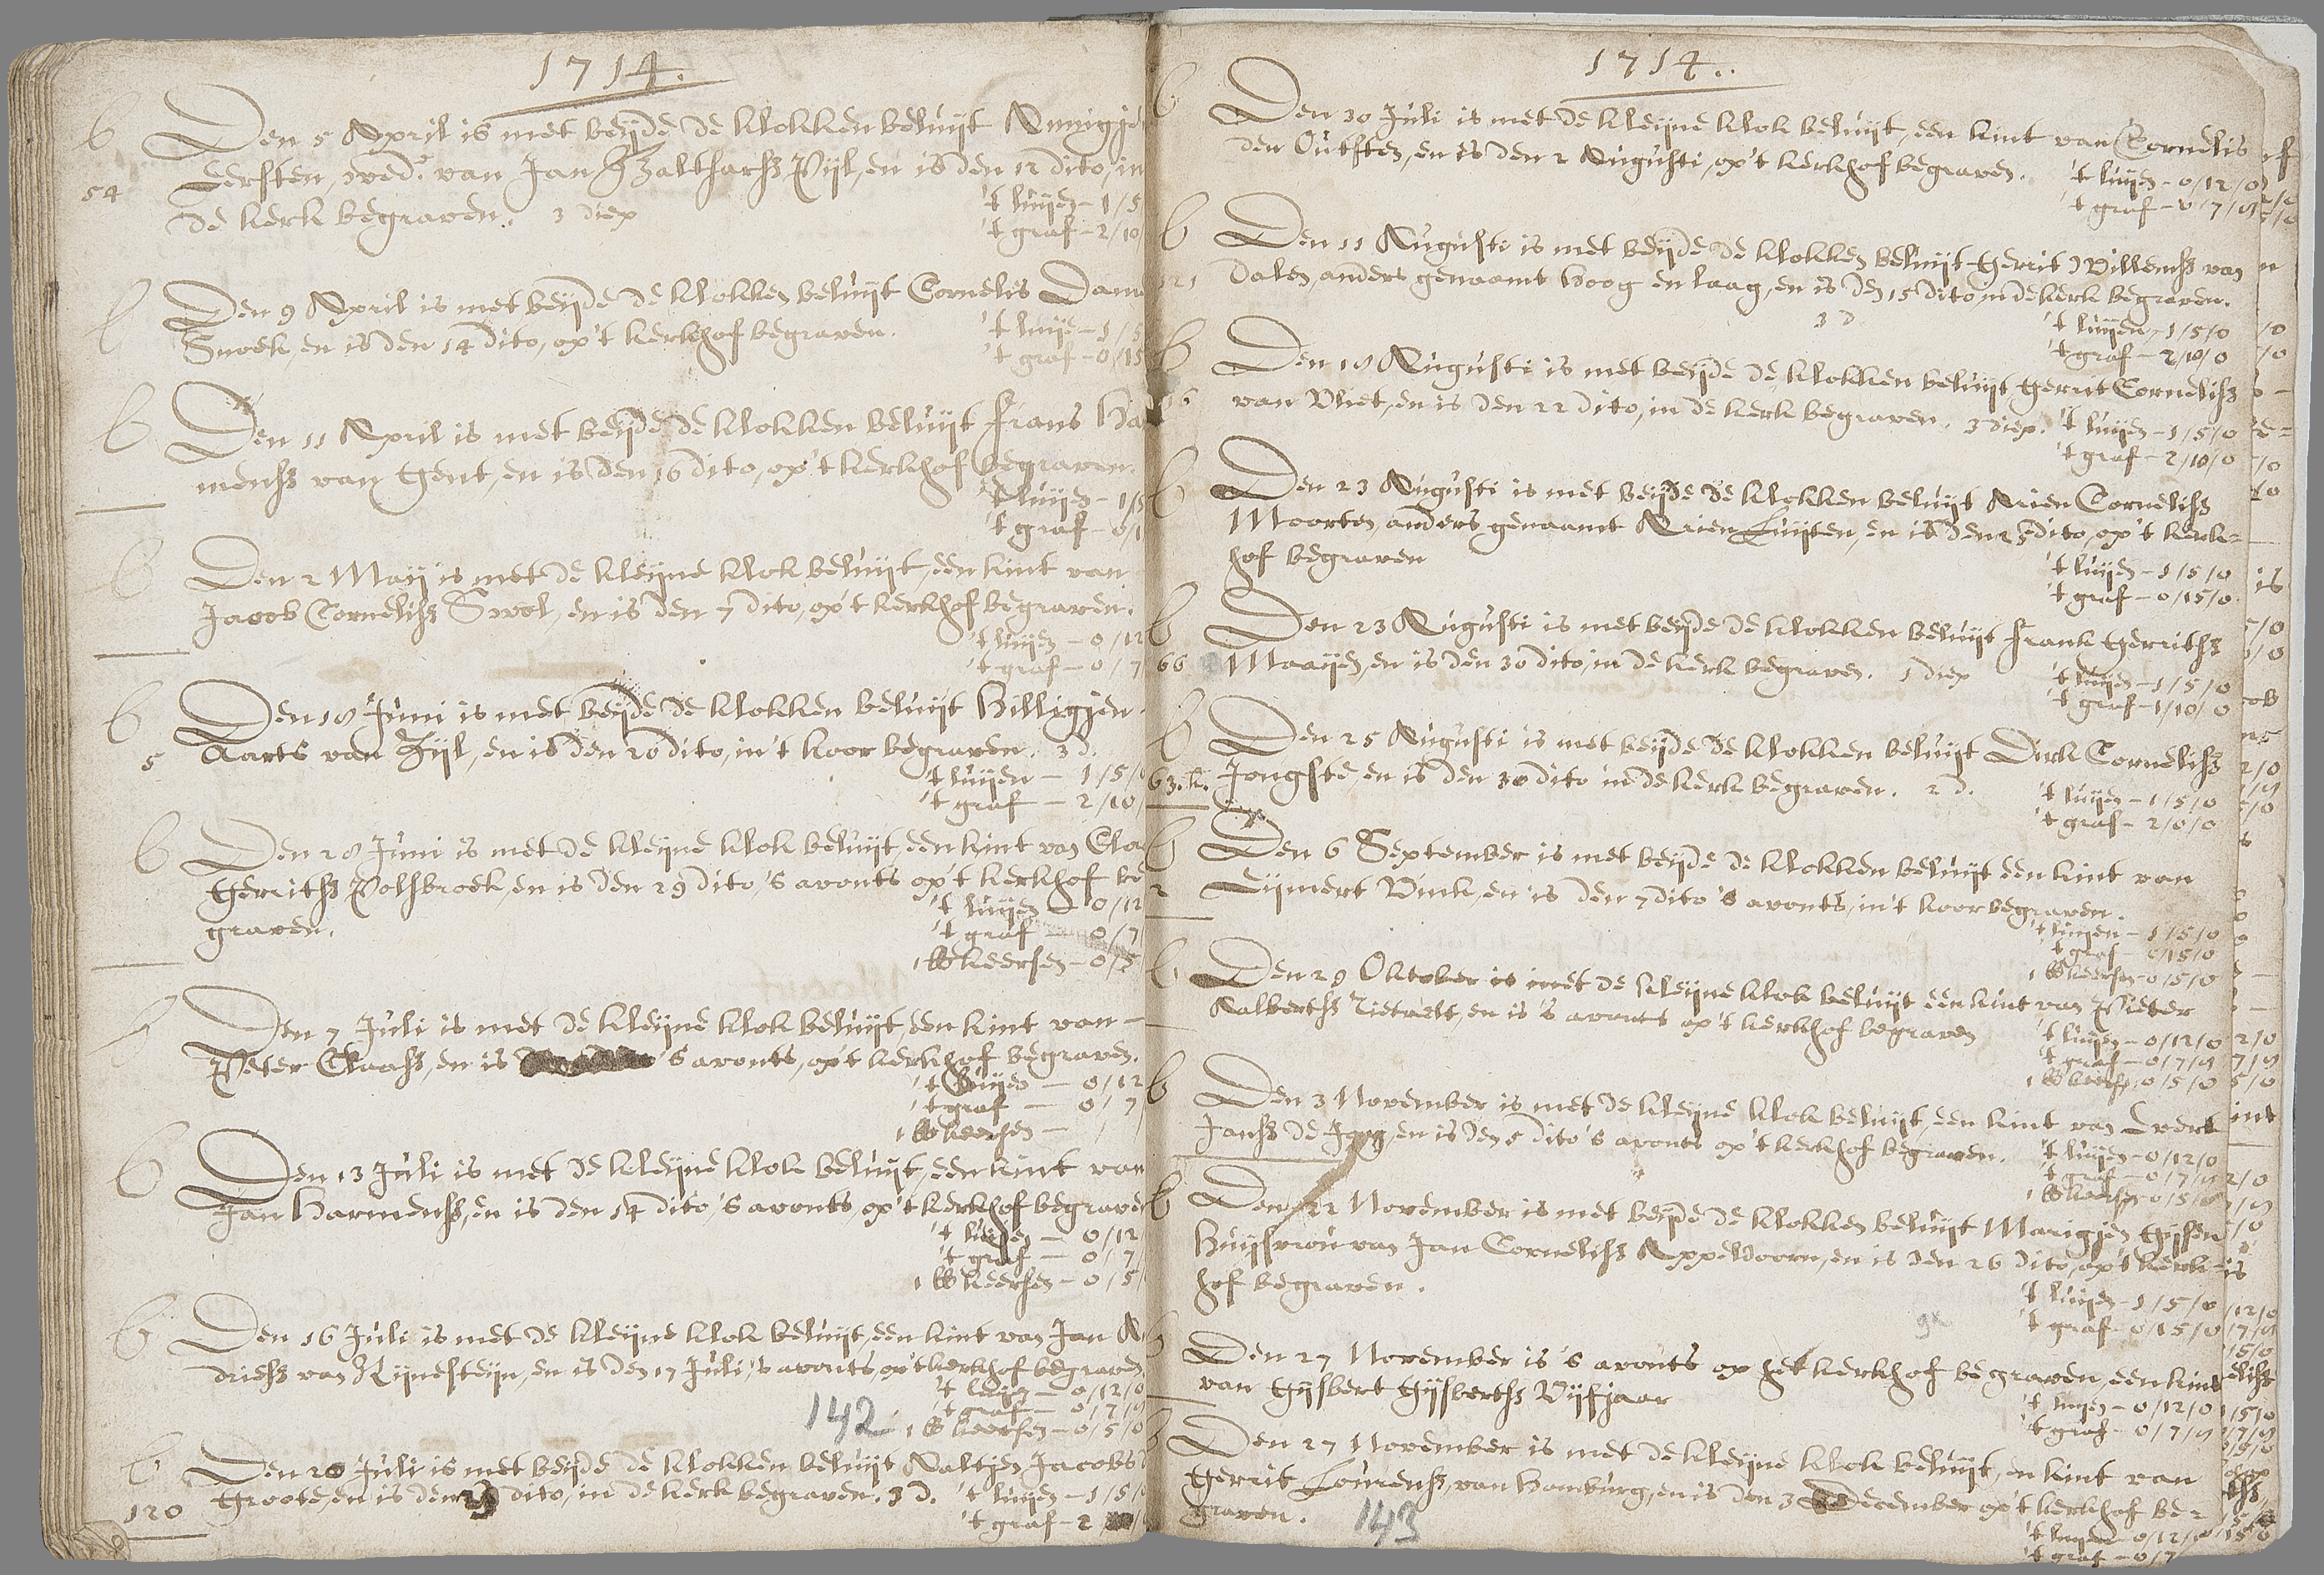 1714.
b Den 5 April is met beijde de klokken beluijt Annigje
54 Eersten, wed.e van Jan Balthasarsz Pijl, en is den 12 dito, in
de kerk begraven. 3 diep 't luijen - 1/5
't graf - 2/10
b Den 9 April is met beijde de klokken beluijt Cornelis
Snoek, en is den 14 dito, op 't kerkhof begraven. 't luije - 1/5
't graf - 0/15
b Den 11 April is met beijde de klokken beluijt Frans Ha
mensz van Gent, en is den 16 dito, op 't kerkhof begraven.
't luijen - 1/5
't graf - 0/1
b Den 2 Maij is met de kleijne klok beluijt, een kint van
Jacob Cornelisz Swol, en is den 7 dito, op 't kerkhof begraven.
't luijen - 0/12
't graf - 0/7
b Den 18 Juni is met beijde de klokken beluijt Hilligjen
5 Aarts van Zijl, en is den 20 dito, in 't koor begraven. 3 d.
't luijen - 1/5/
't graf - 2/10
b Den 28 Juni is met de kleijne klok beluijt, een kint van Cla
Gerritsz Polsbroek, en is den 29 dito, 's avonts op 't kerkhof be
graven. 't luijen - 0/12
't graf - 0/7
1 lb keersen - 0/5
b Den 7 Juli is met de kleijne klok beluijt, een kint van
Peter Claasz, en is 's avonts, op 't kerkhof begraven.
't luijen - 0/12
't graf - 0/7
1 lb keersen - / /
b Den 13 Juli is met de kleijne klok beluijt, een kint van
Jan Harmensz, en is den 14 dito, 's avonts, op 't kerkhof begraven
't luijen - 0/12
't graf - 0/7
1 lb keersen - 0/5
b Den 16 Juli is met de kleijne klok beluijt, een kint van Jan A
driesz van Rijnesteijn, en is den 17 Juli, 's avonts, op 't kerkhof begraven
't luijen - 0/12/0
't graf - 0/7/8
142 1 lb keersen - 0/5/0
b Den 20 Juli is met beijde de klokken beluijt Aaltjen Jacobs
120 Groote, en is den dito, in de kerk begraven. 3 d. 't luijen - 1/5/
't graf - 2
1714..
b. Den 30 Juli is met de kleijne klok beluijt, een kint van Cornelis
den Outsten, en is den 2 Augusti, op 't kerkhof begraven. 't luijen - 0/12/0
't graf - 0/7/8
b Den 11 Augusti is met beijde de klokken beluijt Gerrit Willemsz van
121 Dalen, anders genaamt hoog en laag, en is den 15 dito, in de kerk begraven.
3 d 't luijen - 1/5/0
't graf - 2/10/0
b Den 18 Augusti is met beijde de klokken beluijt, Gerrit Cornelisz
van Vliet, en is den 22 dito, in de kerk begraven. 3 diep. 't luijen - 1/5/0
't graf - 2/10/0
b Den 23 Augusti is met beijde de klokken beluijt Arien Cornelisz
Moorten anders genaamt Arien Luijten, en is den 25 dito, op 't kerk=
hof begraven 't luijen - 1/5/0
't graf - 0/15/0
b Den 23 Augusti is met beijde de klokken beluijt Frank Gerritsz
66 Maaijen, en is den 30 dito, in de kerk begraven. 1 diep 't luijen - 1/5/0
't graf - 1/10/0
b Den 25 Augusti is met beijde de klokken beluijt Dirk Cornelisz
63.k. Jongste, en is den 30 dito in de kerk begraven. 2 d. 't luijen - 1/5/0
't graf - 2/0/0
b Den 6 September is met beijde de klokken beluijt een kint van
2 Eijmert Vink, en is den 7 dito 's avonts, in 't koor begraven.
't luijen - 1/5/0
't graf - 0/15/0
1 lb keersen - 0/5/0
b Den 29 Oktober is met de kleijne klok beluijt een kint van Pieter
Aalbertsz Rietvelt, en is 's avonts op 't kerkhof begraven 't luijen - 0/12/0
't graf - 0/7/8
1 lb keersen 0/5/0
b Den 3 November is met de kleijne klok beluijt, een kint van Evert
Jansz de Jong, en is den 5 dito 's avonts op 't kerkhof begraven. 't luijen - 0/12/0
't graf - 0/7/8
1 lb keersen 0/5/0
b Den 22 November is met beijde de klokken beluijt Marigjen Gijsen
Huijsvrou van Jan Cornelisz Appeldoorn, en is den 26 dito, op 't kerk=
hof begraven. 't luijen - 1/5/0
't graf - 0/15/0
Den 27 November is 's avonts op het kerkhof begraven, een kint
van Gijsbert Gijsbertsz Vijfjaar 't luijen - 0/12/0
't graf - 0/7/8
Den 27 November is met de kleijne klok beluijt, en kint van
Gerrit Lourensz, van Hamburg, en is den 3 December op 't kerkhof be=
graven. 143 't luijen - 0/12/0
't graf - 0/7